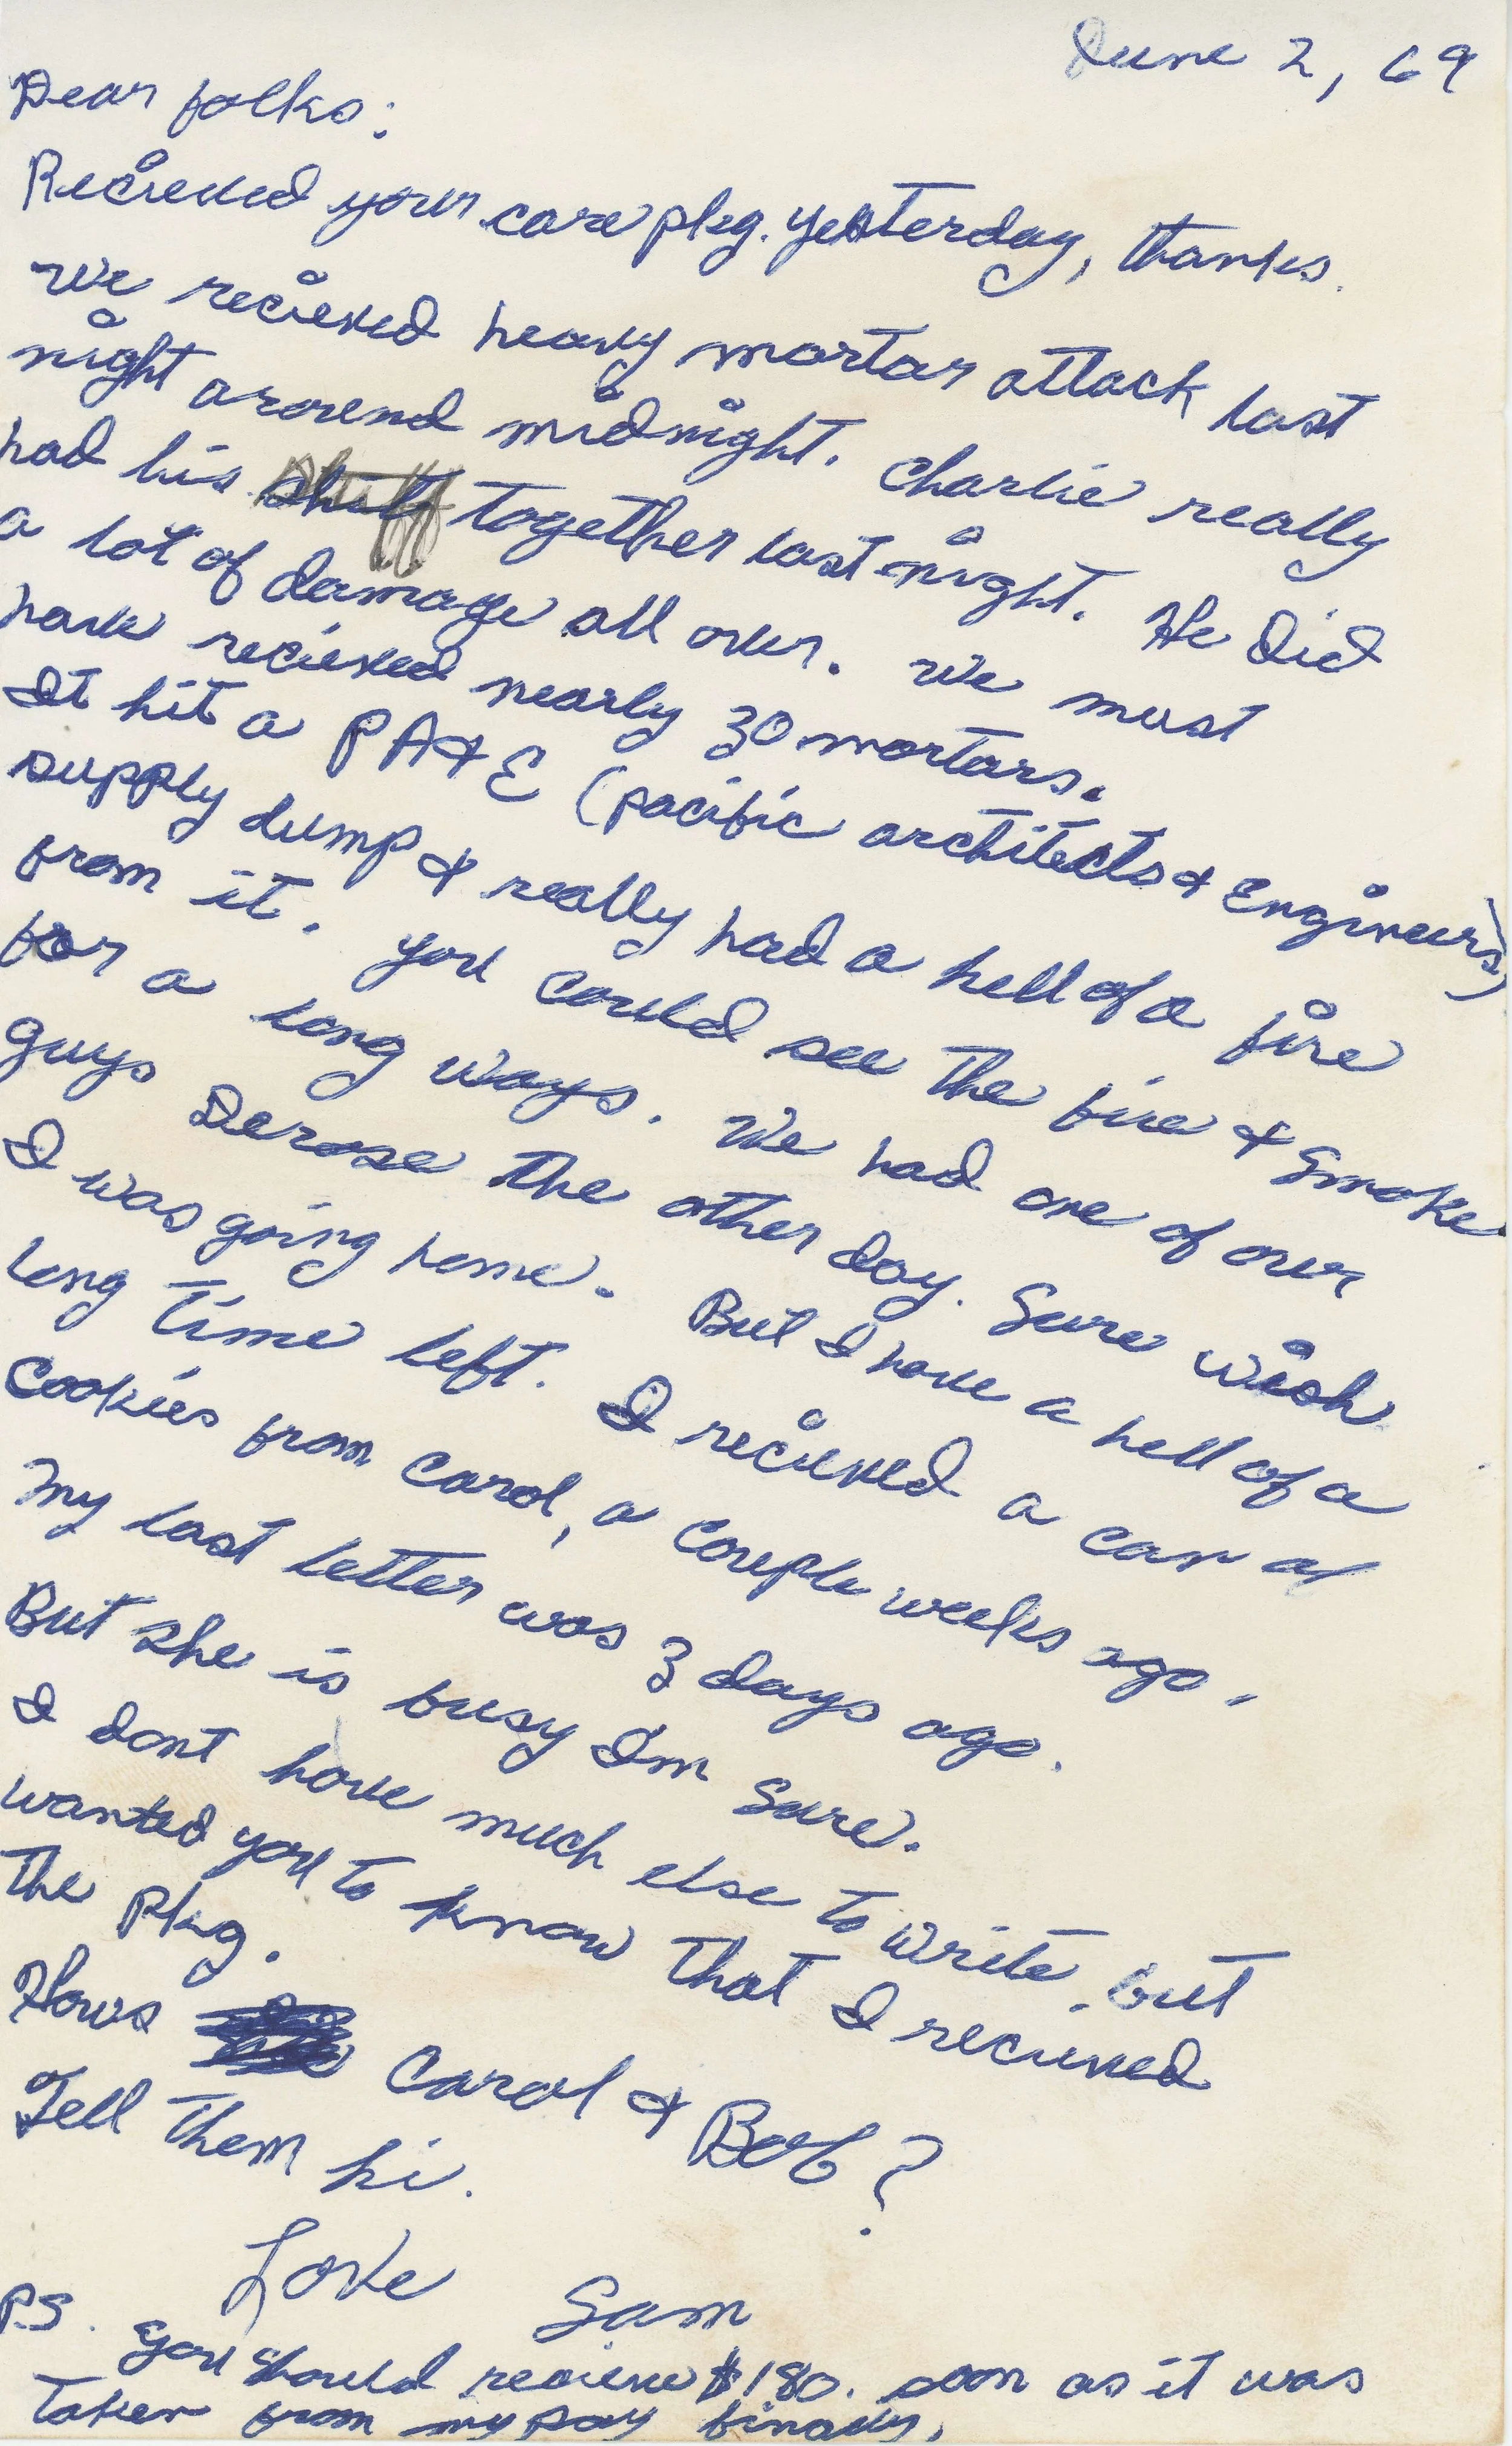 June 2, 69
Dear folks:
Recieved your care pkg. yesterday, thanks.
We recieved heavy mortar attack last
night around midnight. Charlie really
had his together last night. He did
a lot of damage all over. We must
have recieved nearly 30 mortars.
It hit a PA&E (pacific architects & Engineers)
supply dump & really had a hell of a fire
from it. You could see the fire & smoke
for a long ways. We had one of our
guys Derose the other day. Sure wish
I was going home. But I have a hell of a
long time left. I recieved a can of
cookies from Carol, a couple weeks ago.
My last letter was 3 days ago.
But she is busy Im sure.
I dont have much else to write, but
wanted you to know that I recieved
the pkg.
Hows Carol & Bob?
Tell them hi.
Love Sam
P.S. You should recieve $180. soon as it was
taken from my pay finally.